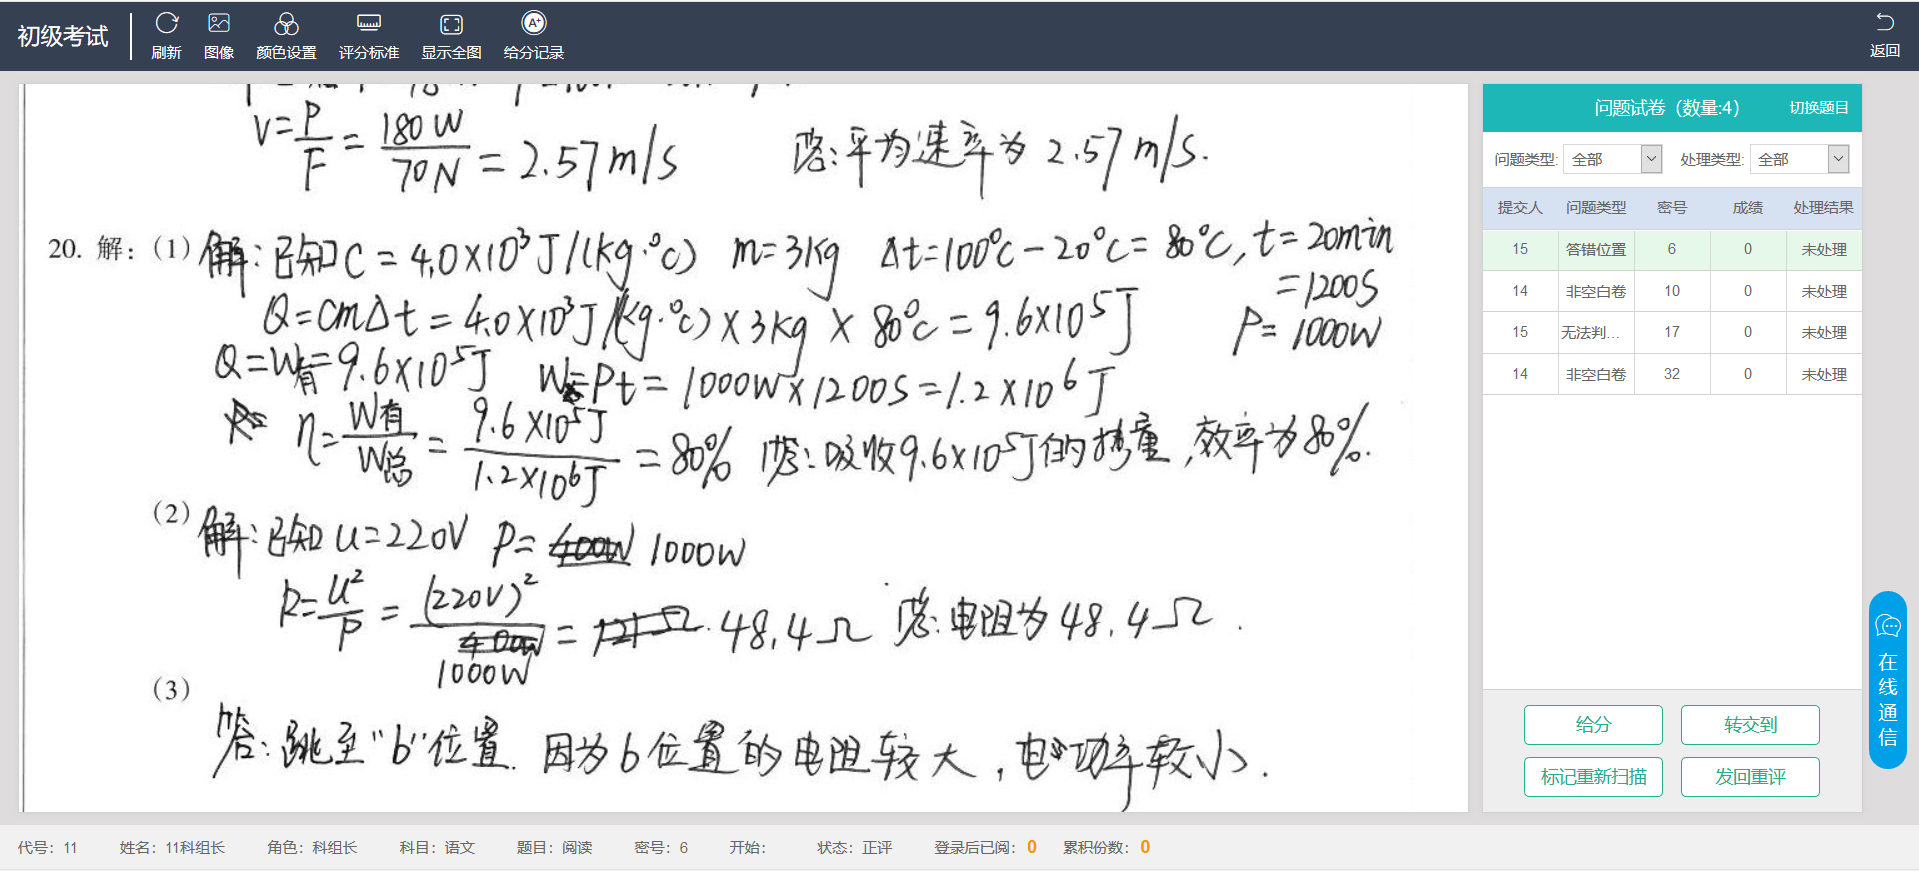 初级考试 刷新 图像 颜色设置 评分标准 显示全图 给分记录 返回
V=P/F=180W/70N=2.57m/s 答:平均速率为 2.57m/s.
20. 解: (1) 解:已知C=4.0×10³J/(kg·℃) m=3kg Δt=100℃-20℃=80℃, t=20min
=1200S
Q=cmΔt=4.0×10³J/(kg·℃)×3kg×80℃=9.6×10⁵J P=1000W
Q=W有=9.6×10⁵J W总=Pt=1000W×1200S=1.2×10⁶J
η=W有/W总=9.6×10⁵J/1.2×10⁶J=80% 答:吸收9.6×10⁵J的热量,效率为80%.
(2) 解:已知U=220V P=400W 1000W
R=U²/P=(220V)²/400W 1000W=121Ω.48.4Ω 答:电阻为48.4Ω.
(3)
答:跳至"b"位置.因为b位置的电阻较大,电功率较小.
问题试卷（数量:4） 切换题目
问题类型: 全部 处理类型: 全部
提交人 问题类型 密号 成绩 处理结果
15 答错位置 6 0 未处理
14 非空白卷 10 0 未处理
15 无法判... 17 0 未处理
14 非空白卷 32 0 未处理
给分 转交到
标记重新扫描 发回重评
在线通信
代号: 11 姓名: 11科组长 角色: 科组长 科目: 语文 题目: 阅读 密号: 6 开始: 状态: 正评 登录后已阅: 0 累积份数: 0